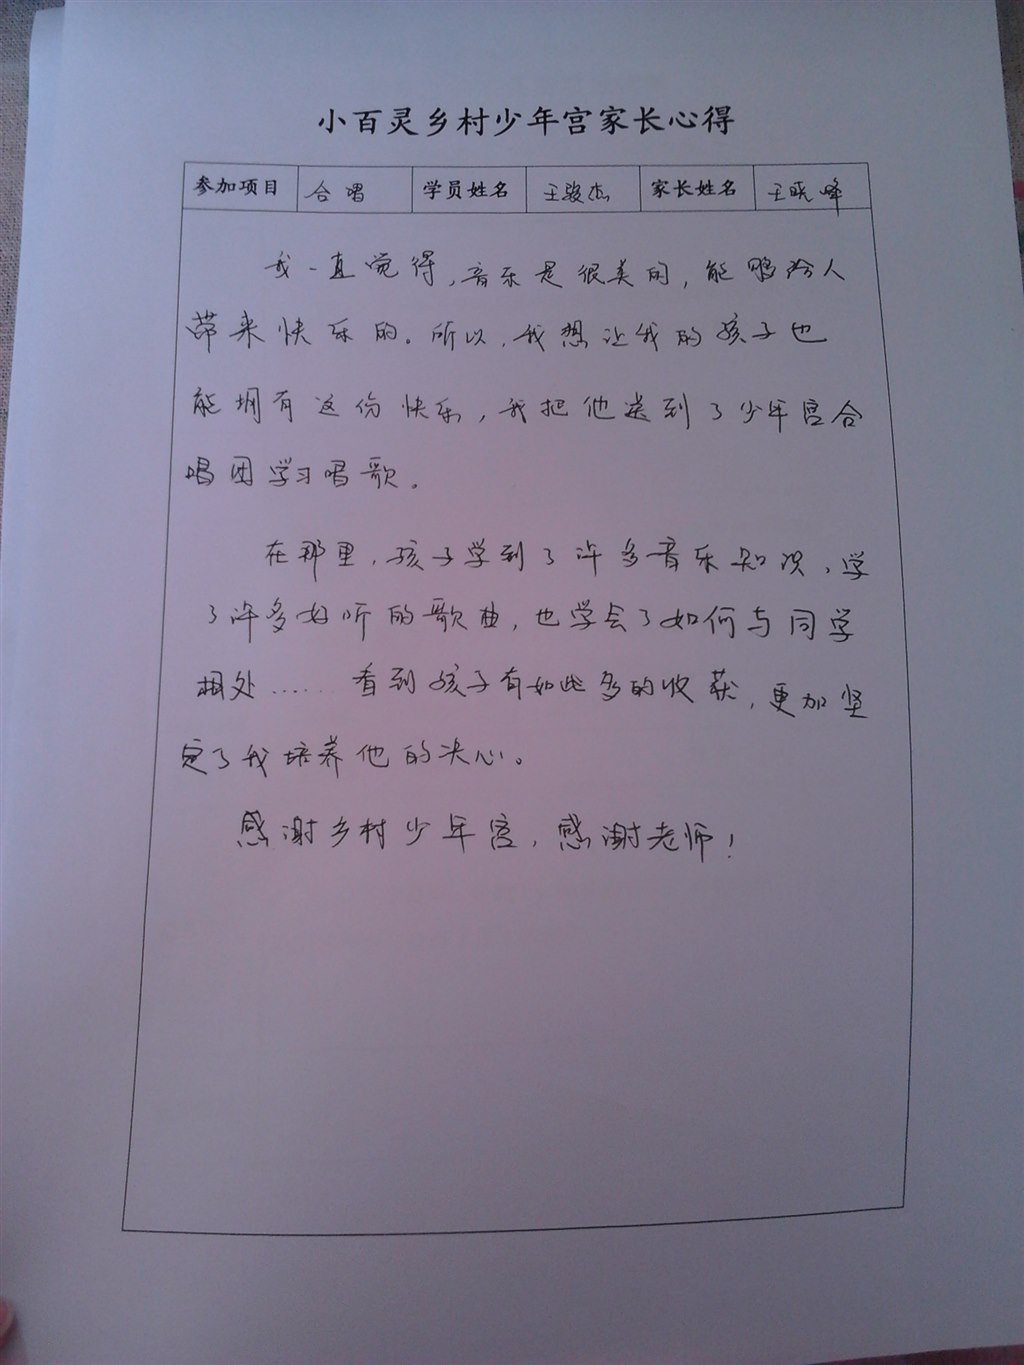 小百灵乡村少年宫家长心得
参加项目 合唱 学员姓名 王骏杰 家长姓名 王晓峰
我一直觉得,音乐是很美的,能够给人
带来快乐的。所以,我想让我的孩子也
能拥有这份快乐,我把他送到了少年宫合
唱团学习唱歌。
在那里,孩子学到了许多音乐知识,学
了许多好听的歌曲,也学会了如何与同学
相处…… 看到孩子有如此多的收获,更加坚
定了我培养他的决心。
感谢乡村少年宫,感谢老师!